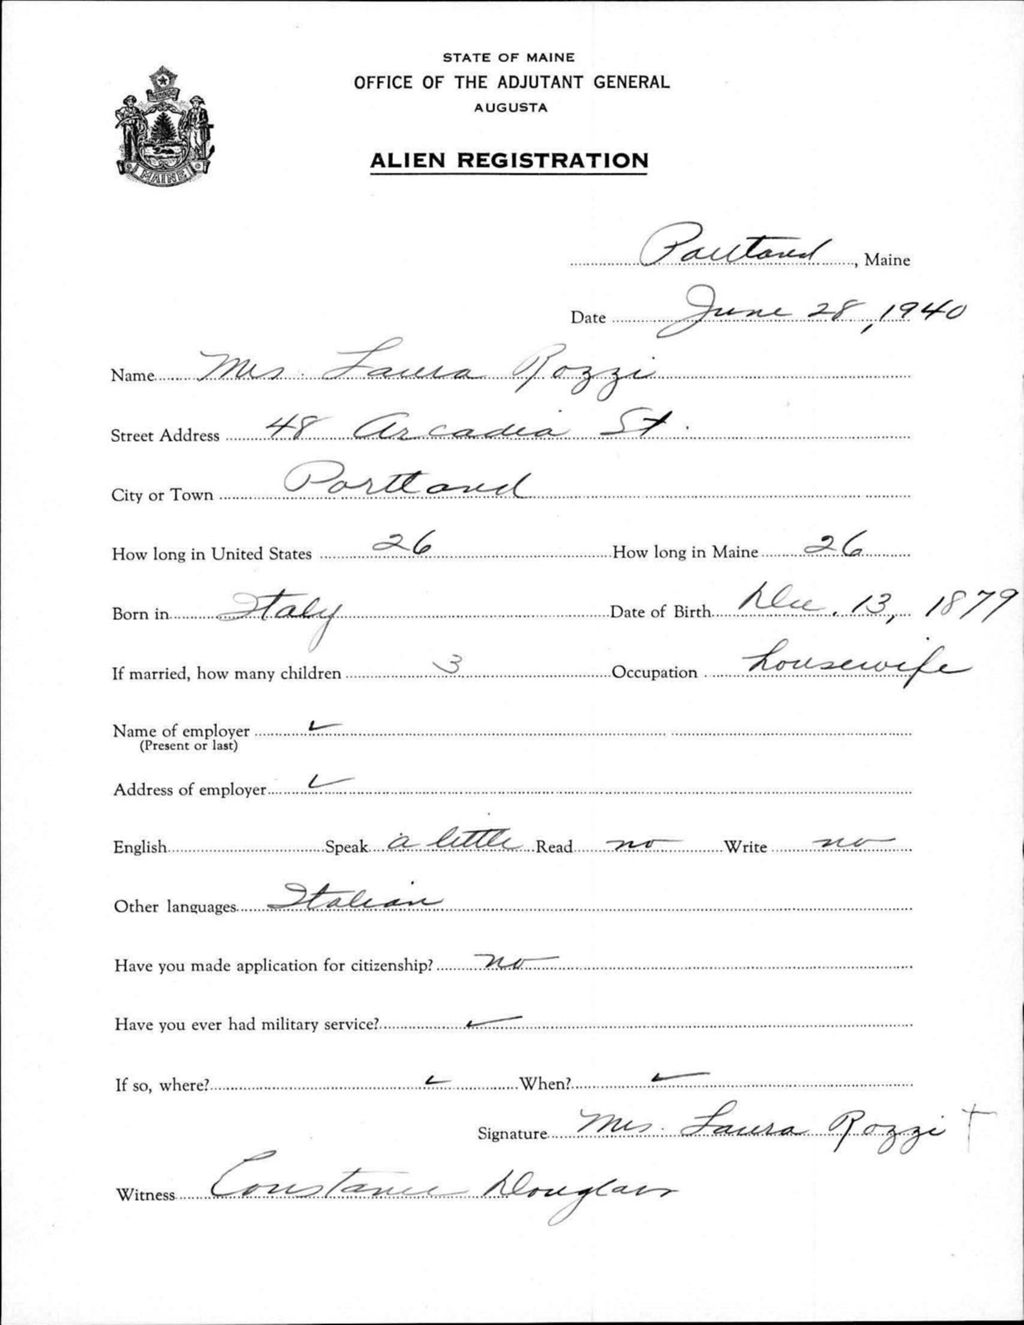 STATE OF MAINE
OFFICE OF THE ADJUTANT GENERAL
AUGUSTA
ALIEN REGISTRATION
MAINE
Portland, Maine
Date June 28, 1940
Name Mrs. Laura Rozzi
Street Address 48 Arcadia St.
City or Town Portland
How long in United States 26 How long in Maine 26
Born in Italy Date of Birth Dec. 13, 1879
If married, how many children 3 Occupation housewife
Name of employer ✓
(Present or last)
Address of employer ✓
English Speak a little Read no Write no
Other languages Italian
Have you made application for citizenship? no
Have you ever had military service? ✓
If so, where? ✓ When? ✓
Signature Mrs. Laura Rozzi +
Witness Constance Douglass